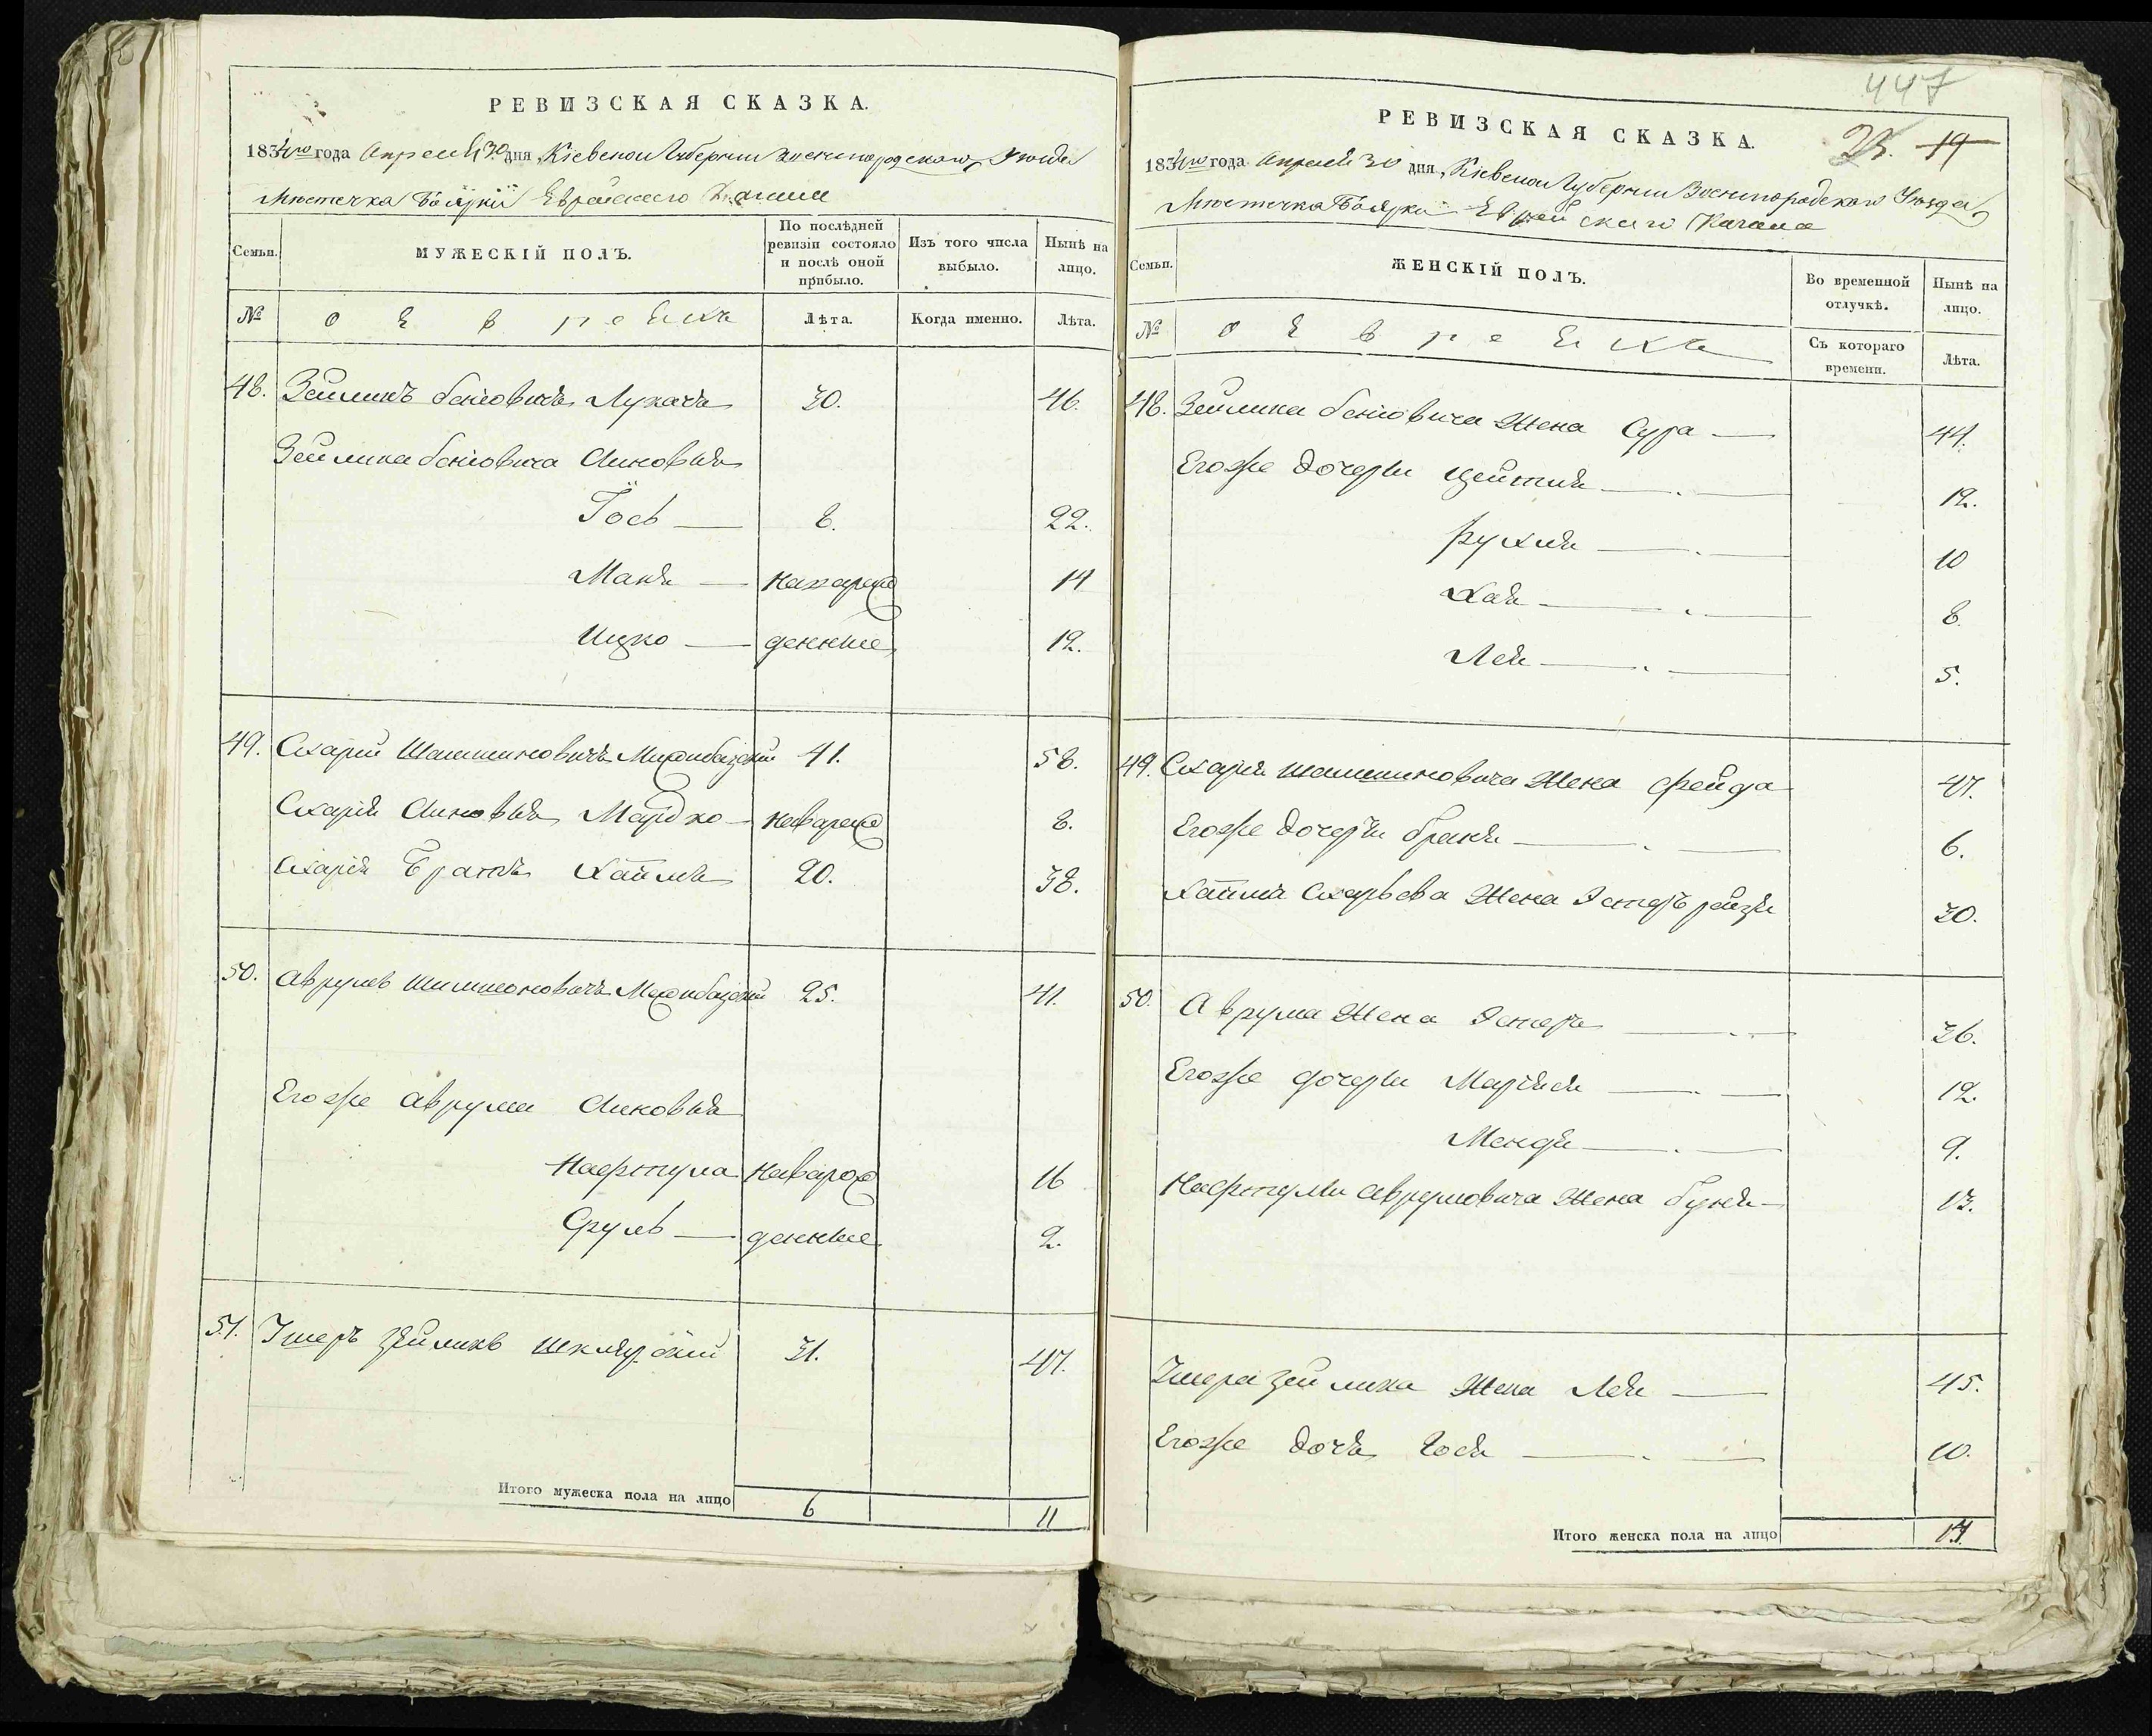 РЕВИЗСКАЯ СКАЗКА.
1834го года Апреля 30 дня, Кіевской Губернии Звенигородскаго Уѣзда
Мѣстечка Боярки Еврейского Кагала
Семьи.
МУЖЕСКІЙ ПОЛЪ.
По послѣдней ревизіи состояло и послѣ оной прибыло.
Изъ того числа выбыло.
Нынѣ на лицо.
№
о Евреяхъ
Лѣта.
Когда именно.
Лѣта.
48. Зейликъ Беніовичъ 30. 46.
Зейлика Беніовича Синовья
Іось — 8. 22.
Маня — 14
Ицко — денные 12.
49. Схарій Шлиомовичъ 41. 58.
Схарія Синовья Мардко — 8.
Схарія Братъ Хаимъ 20. 38.
50. Аврумъ 25. 41.
Егоже Аврума Синовья
Нафтула 16
Сруль — денные 2.
51. Ушеръ Зейликъ Шклярский 31. 47.
Итого мужеска пола на лицо 6 11
447
РЕВИЗСКАЯ СКАЗКА.
19
1834го года Апреля 30 дня, Кіевской Губернии Звенигородскаго Уѣзда
Мѣстечка Боярки Еврейскаго Кагала
Семьи.
ЖЕНСКІЙ ПОЛЪ.
Во временной отлучкѣ.
Нынѣ на лицо.
№
о Евреяхъ
Съ котораго времени.
Лѣта.
48. Зейлика Беніовича Жена Сура — 44.
Егоже дочери Цейтля — 12.
Рухля — 10
Хая — 8.
Лея — 5.
49. Схарія Жена Фейга 47.
Егоже дочери Браня — 6.
Хаима Схарьева Жена Эстеръ рейзя 30.
50. Аврума Жена Эстеръ — 36.
Егоже дочери — 12.
Мендя — 9.
Нафтули Аврумовича Жена Буня — 13.
Ушера Зейлика Жена Лея — 45.
Егоже дочь Бося — 10.
Итого женска пола на лицо 14